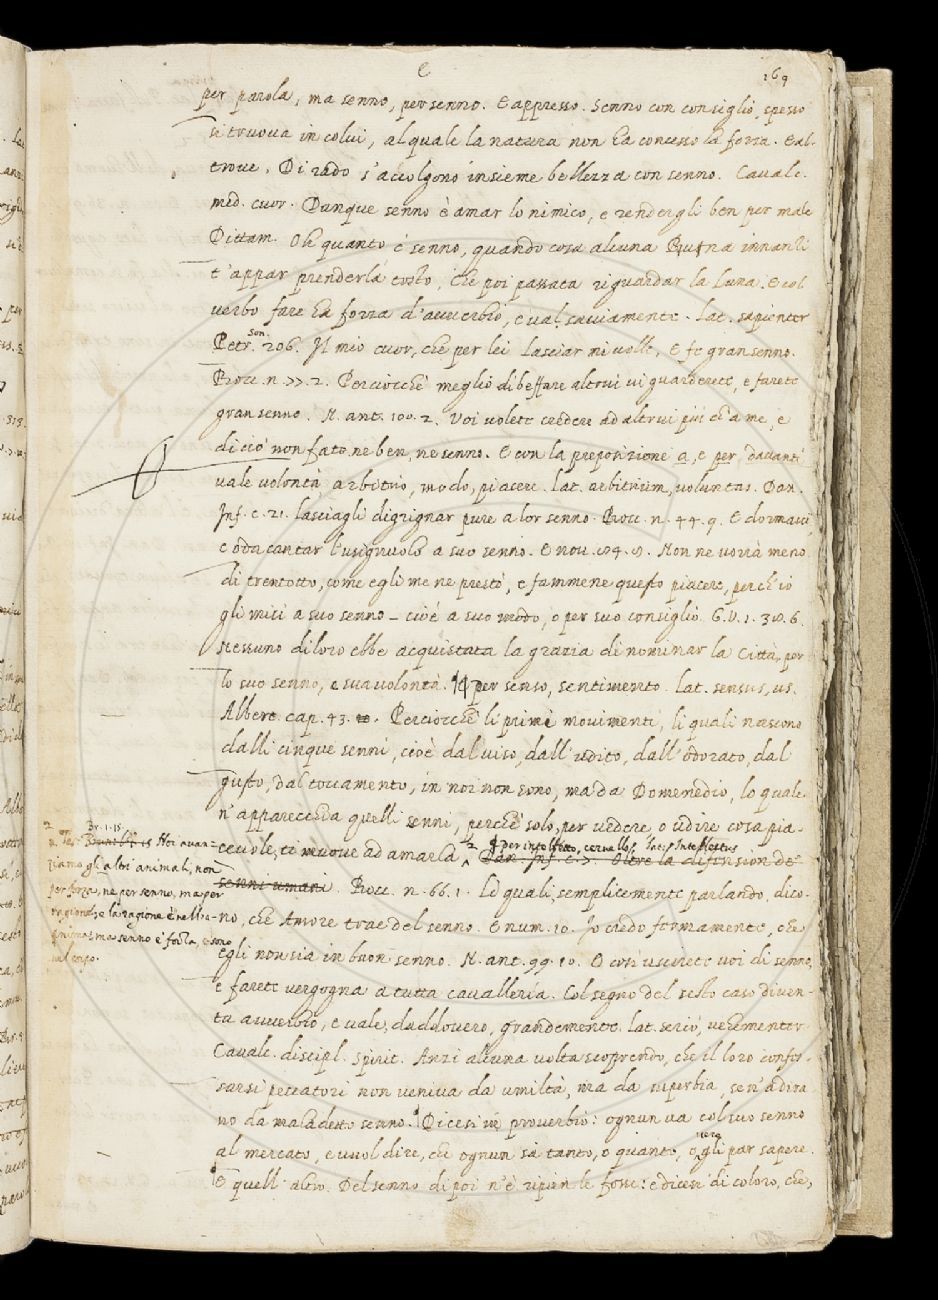 e
169
per parola, ma senno, per senno. E appresso. Senno con consiglio, spesso
si truova in colui, al quale la natura non ha concesso la forza. E al-
trove. Di rado s'accolgono insieme bellezza con senno. Cavalc.
med. cuor. Dunque senno è amar lo nimico, e rendergli ben per male
Dittam. Oh quanto è senno, quando cosa alcuna Buona innanzi
t'appar prenderla tosto, che poi passata riguardar la Luna. E col
verbo fare ha forza d'avverbio, e val saviamente. Lat. sapienter
Petr. son. 206. Il mio cuor, che per lei lasciar mi volle, E fe gran senno.
Bocc. n. 77. 2. Perciocchè meglio di beffare altrui vi guarderete, e farete
gran senno. N. ant. 100. 2. Voi volete credere ad altrui più ch'a me, e
di ciò non fate ne ben, ne senno. E con la preposizione a, e per davanti
vale volontà arbitrio, modo, piacere. lat. arbitrium, voluntas. Dan.
Inf. c. 21. lasciagli digrignar pure a lor senno. Bocc. n. 44. 9. E dormavi
e oda cantar l'usignuolo a suo senno. E nov. Non ne vorrà meno
di trentotto, come egli me ne prestò, e fammene questo piacere, perch'io
gli misi a suo senno - cioè a suo modo, o per suo consiglio. G. V. 1. 38. 6.
nessuno di loro ebbe acquistata la grazia di nominar la Città, per
lo suo senno, e sua volontà. per senso, sentimento. Lat. sensus, us.
Albert. cap. 43. Perciocchè li primi movimenti, li quali nascono
dalli cinque senni, cioè dal viso, dall'udito, dall'odorato, dal
gusto, dal toccamento, in noi non sono, ma da Domenedio, lo quale
n'apparecchia quelli senni, perchè solo, per vedere, o udire cosa pia-
cevole, ti muove ad amarla. 2 per intelletto, cervello, lat. Intellectus
Dan. Inf. c. 7. Oltre la difension de
senni umani. Bocc. n. 66. 1. Li quali, semplicemente parlando, dico-
no, che Amore trae del senno. E num. 10. Io credo fermamente, che
egli non sia in buon senno. N. ant. 99. 10. O così uscirete voi di senno,
e farete vergogna a tutta cavalleria. Col segno del sesto caso diven-
ta avverbio, e vale, daddovero, grandemente. lat. seriò, vehementer.
Cavalc. discipl. spirit. Anzi alcuna volta scoprendo, che il loro confes-
sarsi peccatori non veniva da umiltà, ma da superbia, sen'adira
no da maladetto senno. Dicesi in proverbio: ognun va col suo senno
al mercato, e vuol dire, che ognun sa tanto, o quanto, o vero gli par sapere.
E quell'altro. Del senno di poi n'è ripien le fosse: e dicesi di coloro, che,
2
Br. 1. 15.
Noi avan-
ziamo gli altri animali, non
per forza, ne per senno, ma per
ragione, e la ragione è nell'a-
nima: ma senno e forza, sono
nel corpo.